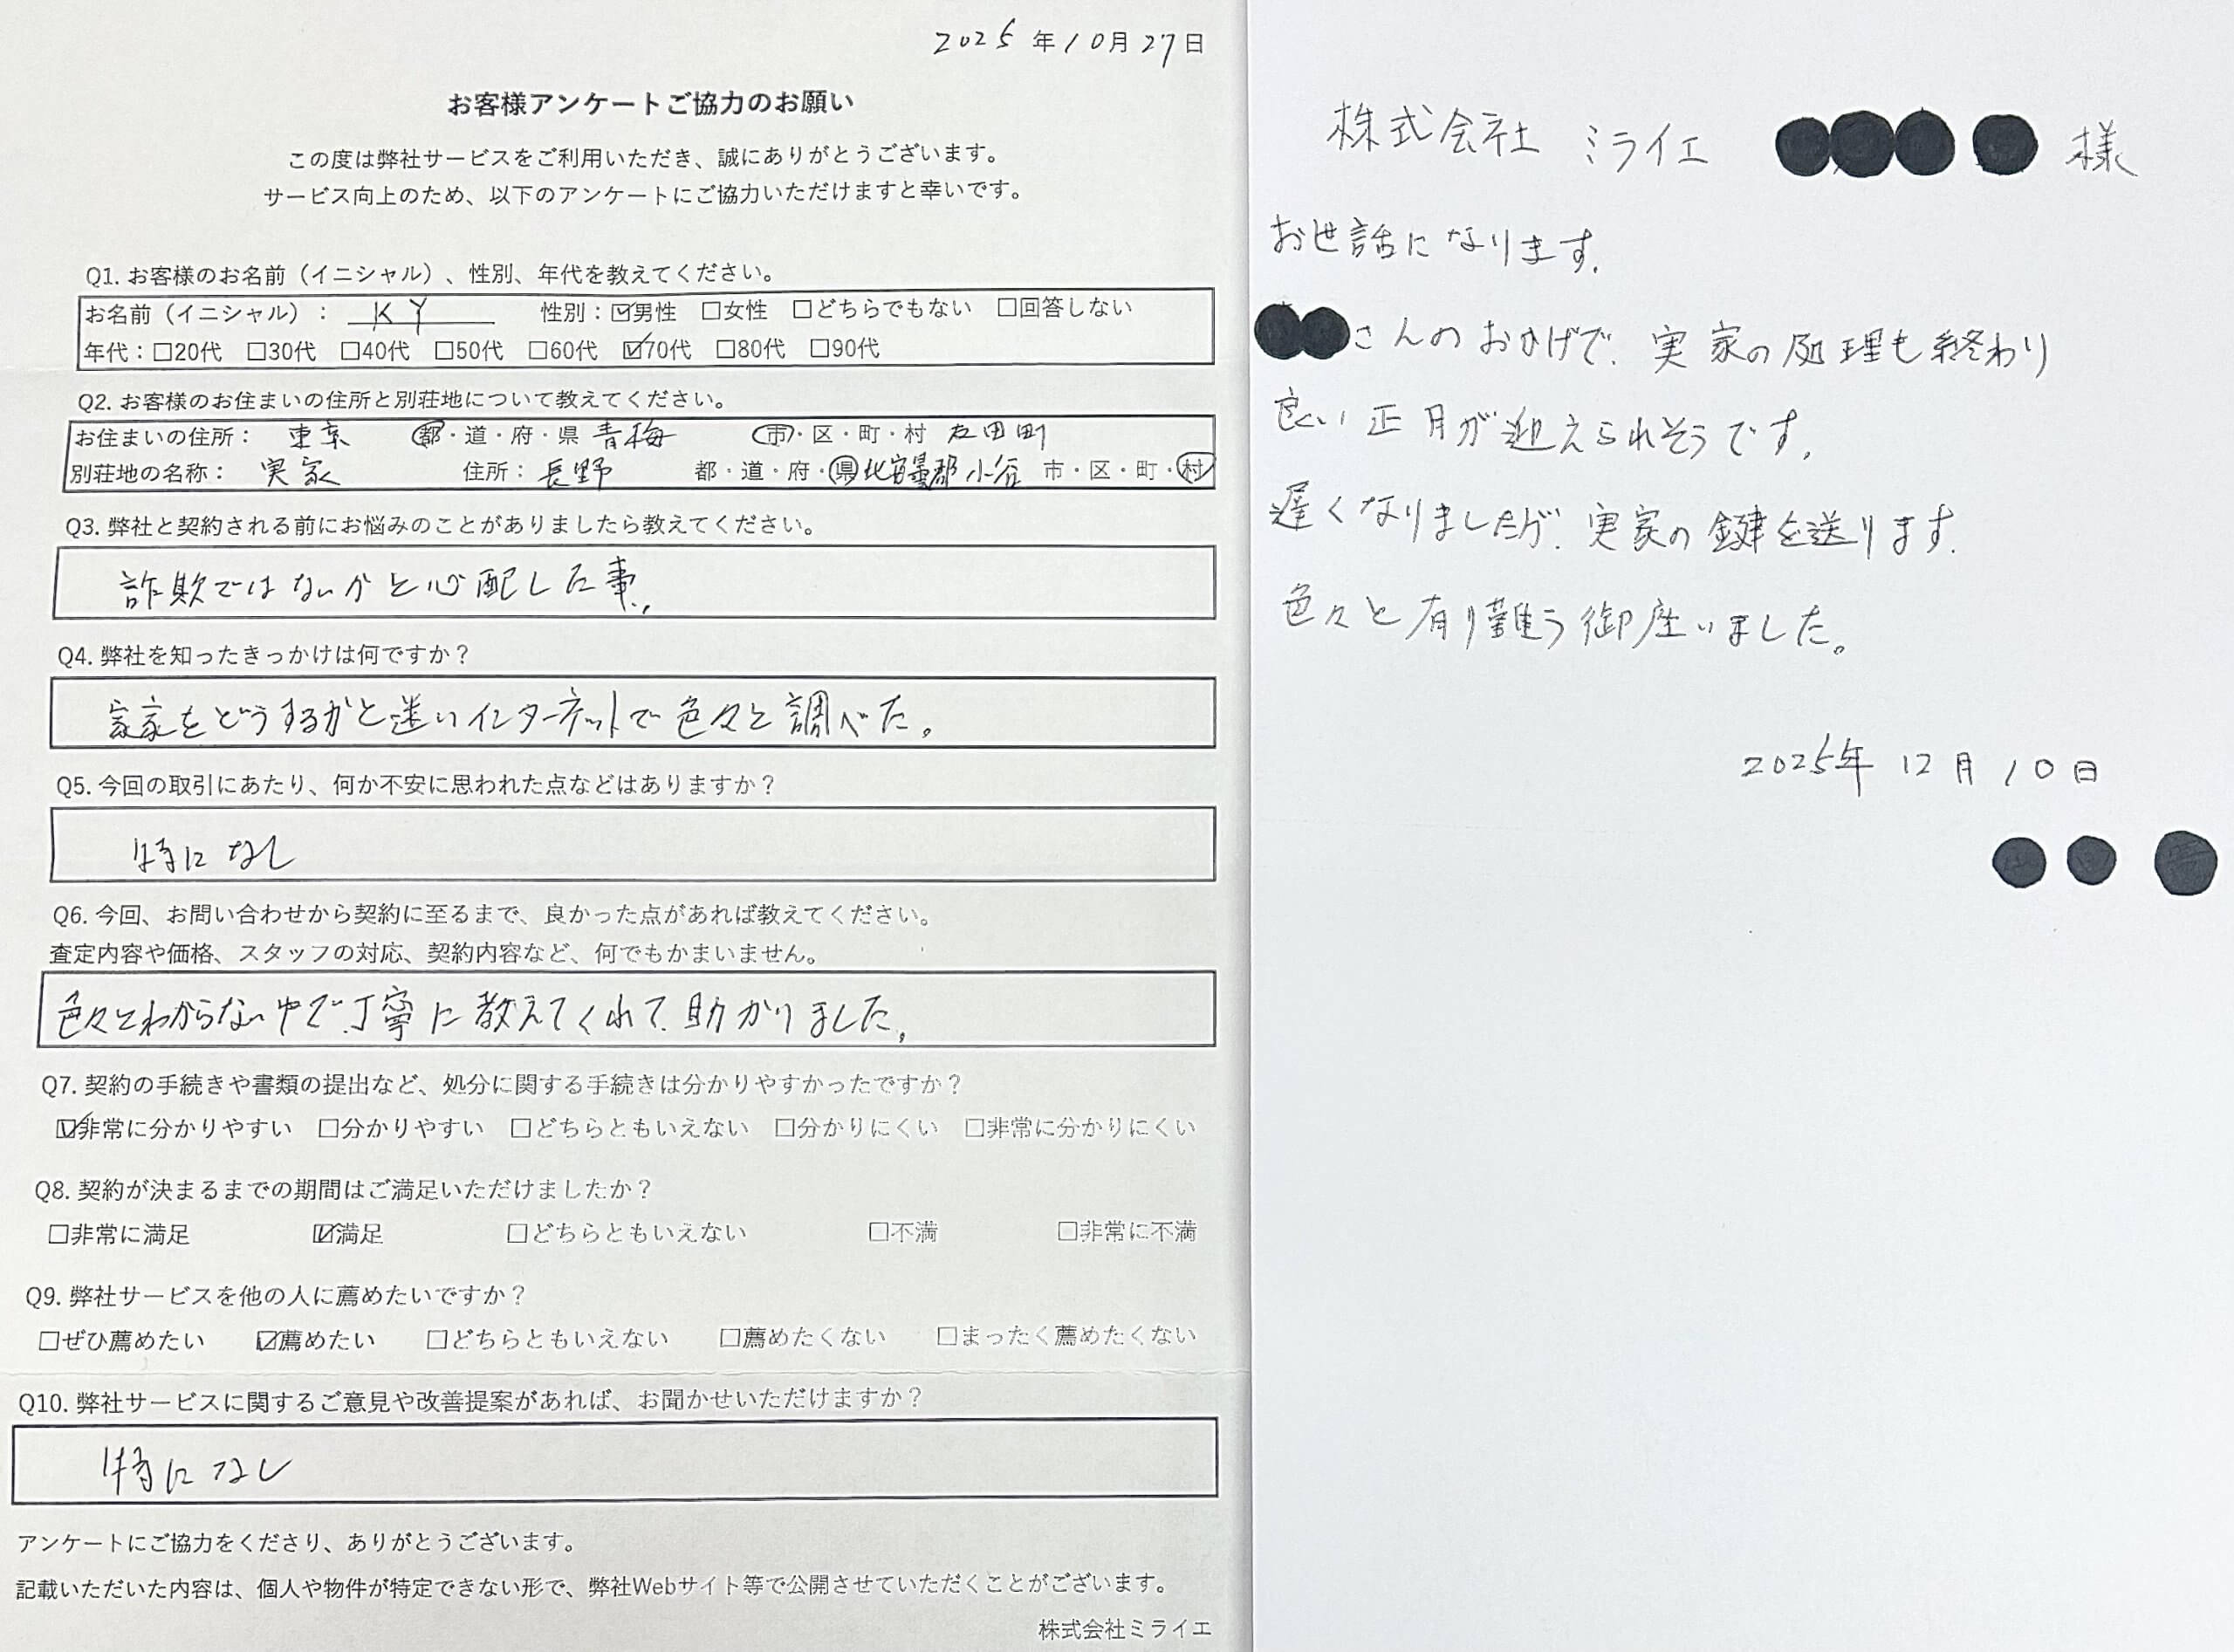 2025年10月27日
お客様アンケートご協力のお願い
この度は弊社サービスをご利用いただき、誠にありがとうございます。
サービス向上のため、以下のアンケートにご協力いただけますと幸いです。
Q1. お客様のお名前（イニシャル）、性別、年代を教えてください。
お名前（イニシャル）： KY 性別：☑男性 □女性 □どちらでもない □回答しない
年代：□20代 □30代 □40代 □50代 □60代 ☑70代 □80代 □90代
Q2. お客様のお住まいの住所と別荘地について教えてください。
お住まいの住所： 東京 都・道・府・県 青梅 市・区・町・村 友田町
別荘地の名称： 実家 住所： 長野 都・道・府・県 北安曇郡 小谷 市・区・町・村
Q3. 弊社と契約される前にお悩みのことがありましたら教えてください。
詐欺ではないかと心配した事。
Q4. 弊社を知ったきっかけは何ですか？
家をどうするかと迷いインターネットで色々と調べた。
Q5. 今回の取引にあたり、何か不安に思われた点などはありますか？
特になし
Q6. 今回、お問い合わせから契約に至るまで、良かった点があれば教えてください。
査定内容や価格、スタッフの対応、契約内容など、何でもかまいません。
色々とわからない中で、丁寧に教えてくれて、助かりました。
Q7. 契約の手続きや書類の提出など、処分に関する手続きは分かりやすかったですか？
☑非常に分かりやすい □分かりやすい □どちらともいえない □分かりにくい □非常に分かりにくい
Q8. 契約が決まるまでの期間はご満足いただけましたか？
□非常に満足 ☑満足 □どちらともいえない □不満 □非常に不満
Q9. 弊社サービスを他の人に薦めたいですか？
□ぜひ薦めたい ☑薦めたい □どちらともいえない □薦めたくない □まったく薦めたくない
Q10. 弊社サービスに関するご意見や改善提案があれば、お聞かせいただけますか？
特になし
アンケートにご協力をくださり、ありがとうございます。
記載いただいた内容は、個人や物件が特定できない形で、弊社Webサイト等で公開させていただくことがございます。
株式会社ミライエ
株式会社 ミライエ 様
お世話になります。
さんのおかげで、実家の処理も終わり
良い正月が迎えられそうです。
遅くなりましたが、実家の鍵を送ります。
色々と有り難う御座いました。
2025年12月10日